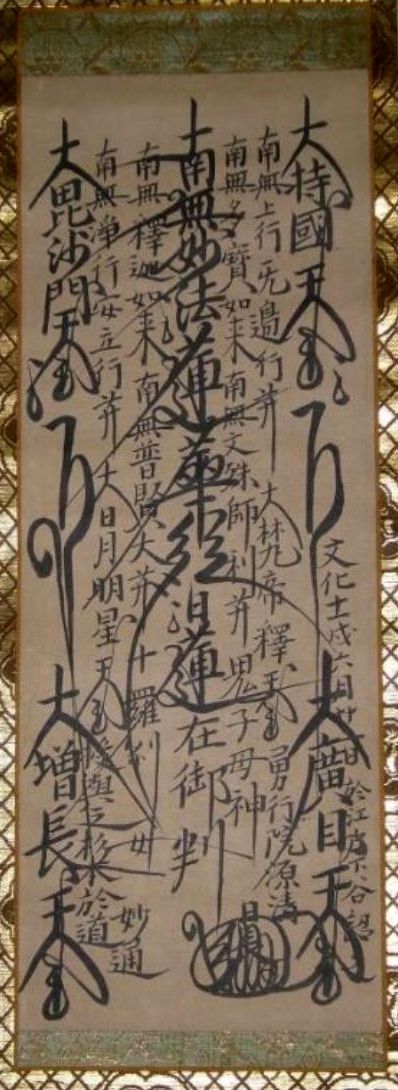 大持國天王
大廣目天王
文化十一戌六月廿一日於江戸下谷認
南無上行无邊行菩大梵帝釋天王
勇行院
南無多寶如来南無文殊師利菩鬼子母神
南無妙法蓮華経日蓮在御判
南無釋迦如来南無普賢大菩十羅刹女
妙通
南無淨行安立行菩大日月明星天王
於道
大毘沙門天王
大増長天王